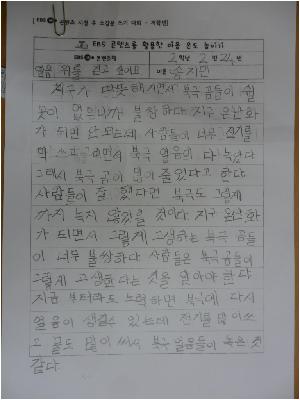 [EBS 콘텐츠 시청 후 소감문 쓰기 대회 - 저학년]
EBS 콘텐츠를 활용한 마음 온도 높이기
EBS 콘텐츠명 2 학년 2 반 24 번
얼음 위를 걷고 싶어요 이름
지구가 따뜻해지면서 북극곰들이 쉴
곳이 없으니까 불쌍하다 지구 온난화
가 되면 안 되는데 사람들이 너무 전기를
막 쓰고 그러면서 북극 얼음이 다 녹았다
그래서 북극 곰이 많이 줄었다고 한다
사람들이 잘 했다면 북극도 그렇게
까지 녹지 않았을 것이다 지구 온난화
가 되면서 그렇게 고생하는 북극 곰들
이 너무 불쌍하다 사람들은 북극 곰들이
그렇게 고생한다는 것을 알아야 한다
지금 부터라도 노력하면 북극에 다시
얼음이 생길수 있는데 전기를 많이 쓰
고 물도 많이 써서 북극 얼음들이 녹은 것
같다